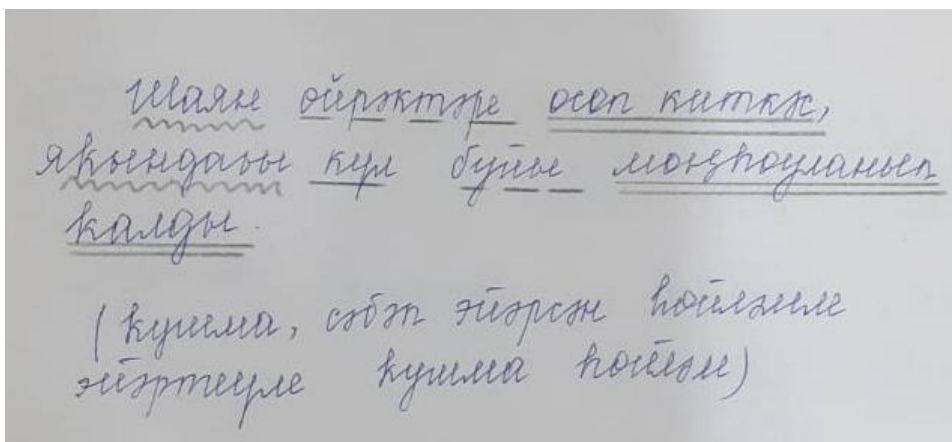 Шаян өйрәктәре осоп киткәс,
яҡындағы күл буйы моңһоуланып
ҡалды.
(ҡушма, сәбәп эйәрсән һөйләмле
эйәртеүле ҡушма һөйләм)